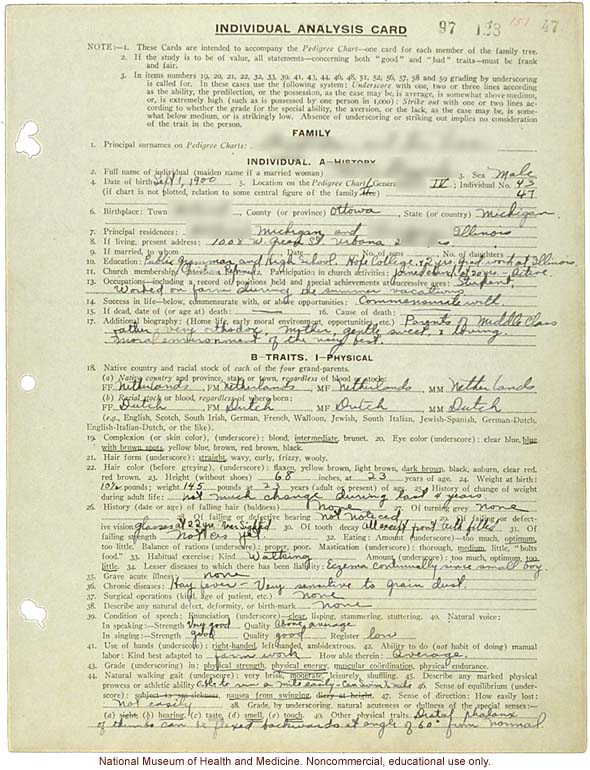 INDIVIDUAL ANALYSIS CARD 97 151 47
NOTE:—1. These Cards are intended to accompany the Pedigree Chart—one card for each member of the family tree.
2. If the study is to be of value, all statements—concerning both "good" and "bad" traits—must be frank
and fair.
3. In items numbered 19, 20, 21, 22, 32, 33, 39, 41, 43, 44, 46, 48, 51, 52, 56, 57, 58 and 59 grading by underscoring
is called for. In these cases use the following system: Underscore with one, two or three lines according
as the ability, the predilection, or the possession, as the case may be, is average, is somewhat above medium,
or, is extremely high (such as is possessed by one person in 1,000): Strike out with one or two lines ac-
cording to whether the grade for the special ability, the aversion, or the lack, as the case may be, is some-
what below medium, or is strikingly low. Absence of underscoring or striking out implies no consideration
of the trait in the person.
FAMILY
1. Principal surnames on Pedigree Charts:
INDIVIDUAL. A—HISTORY
2. Full name of individual (maiden name if a married woman) 3. Sex Male
4. Date of birth Sept 1, 1900 5. Location on the Pedigree Chart: Genera IV; Individual No. 43
(if chart is not plotted, relation to some central figure of the family tree) 47
6. Birthplace: Town , County (or province) Ottowa, State (or country) Michigan
7. Principal residences: Michigan and Illinois
8. If living, present address: 1008 W. Green St. Urbana
9. If married, to whom Date No. of sons No. of daughters
10. Education: Public Grammar and High School. Hope College. 2 yrs. grad work at Illinois
11. Church membership Christian Reformed 12. Participation in church activities: joined church at 20 yrs. – Active.
13. Occupations—including a record of positions held and special achievements at successive ages: Student
Worked on farm during the summer vacations
14. Success in life—below, commensurate with, or above opportunities: Commensurate with.
15. If dead, date of (or age at) death: — 16. Cause of death:
17. Additional biography: (Home life, early moral environment, opportunities, etc.) Parents of Middle Class
father, very orthodox, mother, gentle, sweet, & loving.
Moral environment of the very best.
B—TRAITS. I—PHYSICAL
18. Native country and racial stock of each of the four grand-parents.
(a) Native country and province, state or town, regardless of blood or stock:
FF Netherlands, FM Netherlands MF Netherlands MM Netherlands
(b) Racial stock or blood, regardless of where born:
FF Dutch, FM Dutch MF Dutch MM Dutch
(e.g., English, Scotch, South Irish, German, French, Walloon, Jewish, South Italian, Jewish-Spanish, German-Dutch,
English-Italian-Dutch, or the like).
19. Complexion (or skin color), (underscore): blond, intermediate, brunet. 20. Eye color (underscore): clear blue, blue
with brown spots, yellow blue, brown, red brown, black.
21. Hair form (underscore): straight, wavy, curly, frizzy, wooly.
22. Hair color (before greying), (underscore): flaxen, yellow brown, light brown, dark brown, black, auburn, clear red,
red brown. 23. Height (without shoes) 68 inches, at 23 years of age. 24. Weight at birth:
pounds 145 pounds at 23 years (adult or present) of age. 25. History of change of weight
during adult life: not much change during last 4 years
26. History (date or age) of falling hair (baldness) none 27. Of turning grey none
28. Of failing or defective hearing not noticed 29. Of failing or defect-
ive vision glasses at 22 yrs. 30. Of tooth decay All except front teeth filled 31. Of
failing strength Not as yet 32. Eating: Amount (underscore)—too much, optimum,
too little. Balance of rations (underscore): proper, poor. Mastication (underscore): thorough, medium, little, "bolts
food." 33. Habitual exercise: Kind Walking Amount (underscore): too much, optimum, too
little. 34. Lesser diseases to which there has been liability: Eczema continually since small boy.
35. Grave acute illness: none
36. Chronic diseases: Hay fever – Very sensitive to grain dust.
37. Surgical operations (kind, age of patient, etc.) None
38. Describe any natural defect, deformity, or birth-mark none
39. Condition of speech: Enunciation (underscore)—clear, lisping, stammering, stuttering. 40. Natural voice:
In speaking:—Strength Very good Quality Above average
In singing:—Strength good Quality good Register low
41. Use of hands (underscore): right-handed, left-handed, ambidextrous. 42. Ability to do (not habit of doing) manual
labor: Kind best adapted to farm work How able therein: Average
43. Grade (underscoring) in: physical strength, physical energy, muscular coördination, physical endurance.
44. Natural walking gait (underscore): very brisk, moderate, leisurely, shuffling. 45. Describe any marked physical
prowess or athletic ability Able to run a mile easily – Can swim ½ mile 46. Sense of equilibrium (under-
score): subject to seasickness, nausea from swinging, dizzy at height. 47. Sense of direction: How easily lost:
Not easily 48. Grade, by underscoring, natural acuteness or dullness of the special senses:—
(a) sight, (b) hearing, (c) taste, (d) smell, (e) touch. 49. Other physical traits: Distal phalanx
of thumbs can be flexed backwards at angle of 60° from normal.
National Museum of Health and Medicine. Noncommercial, educational use only.